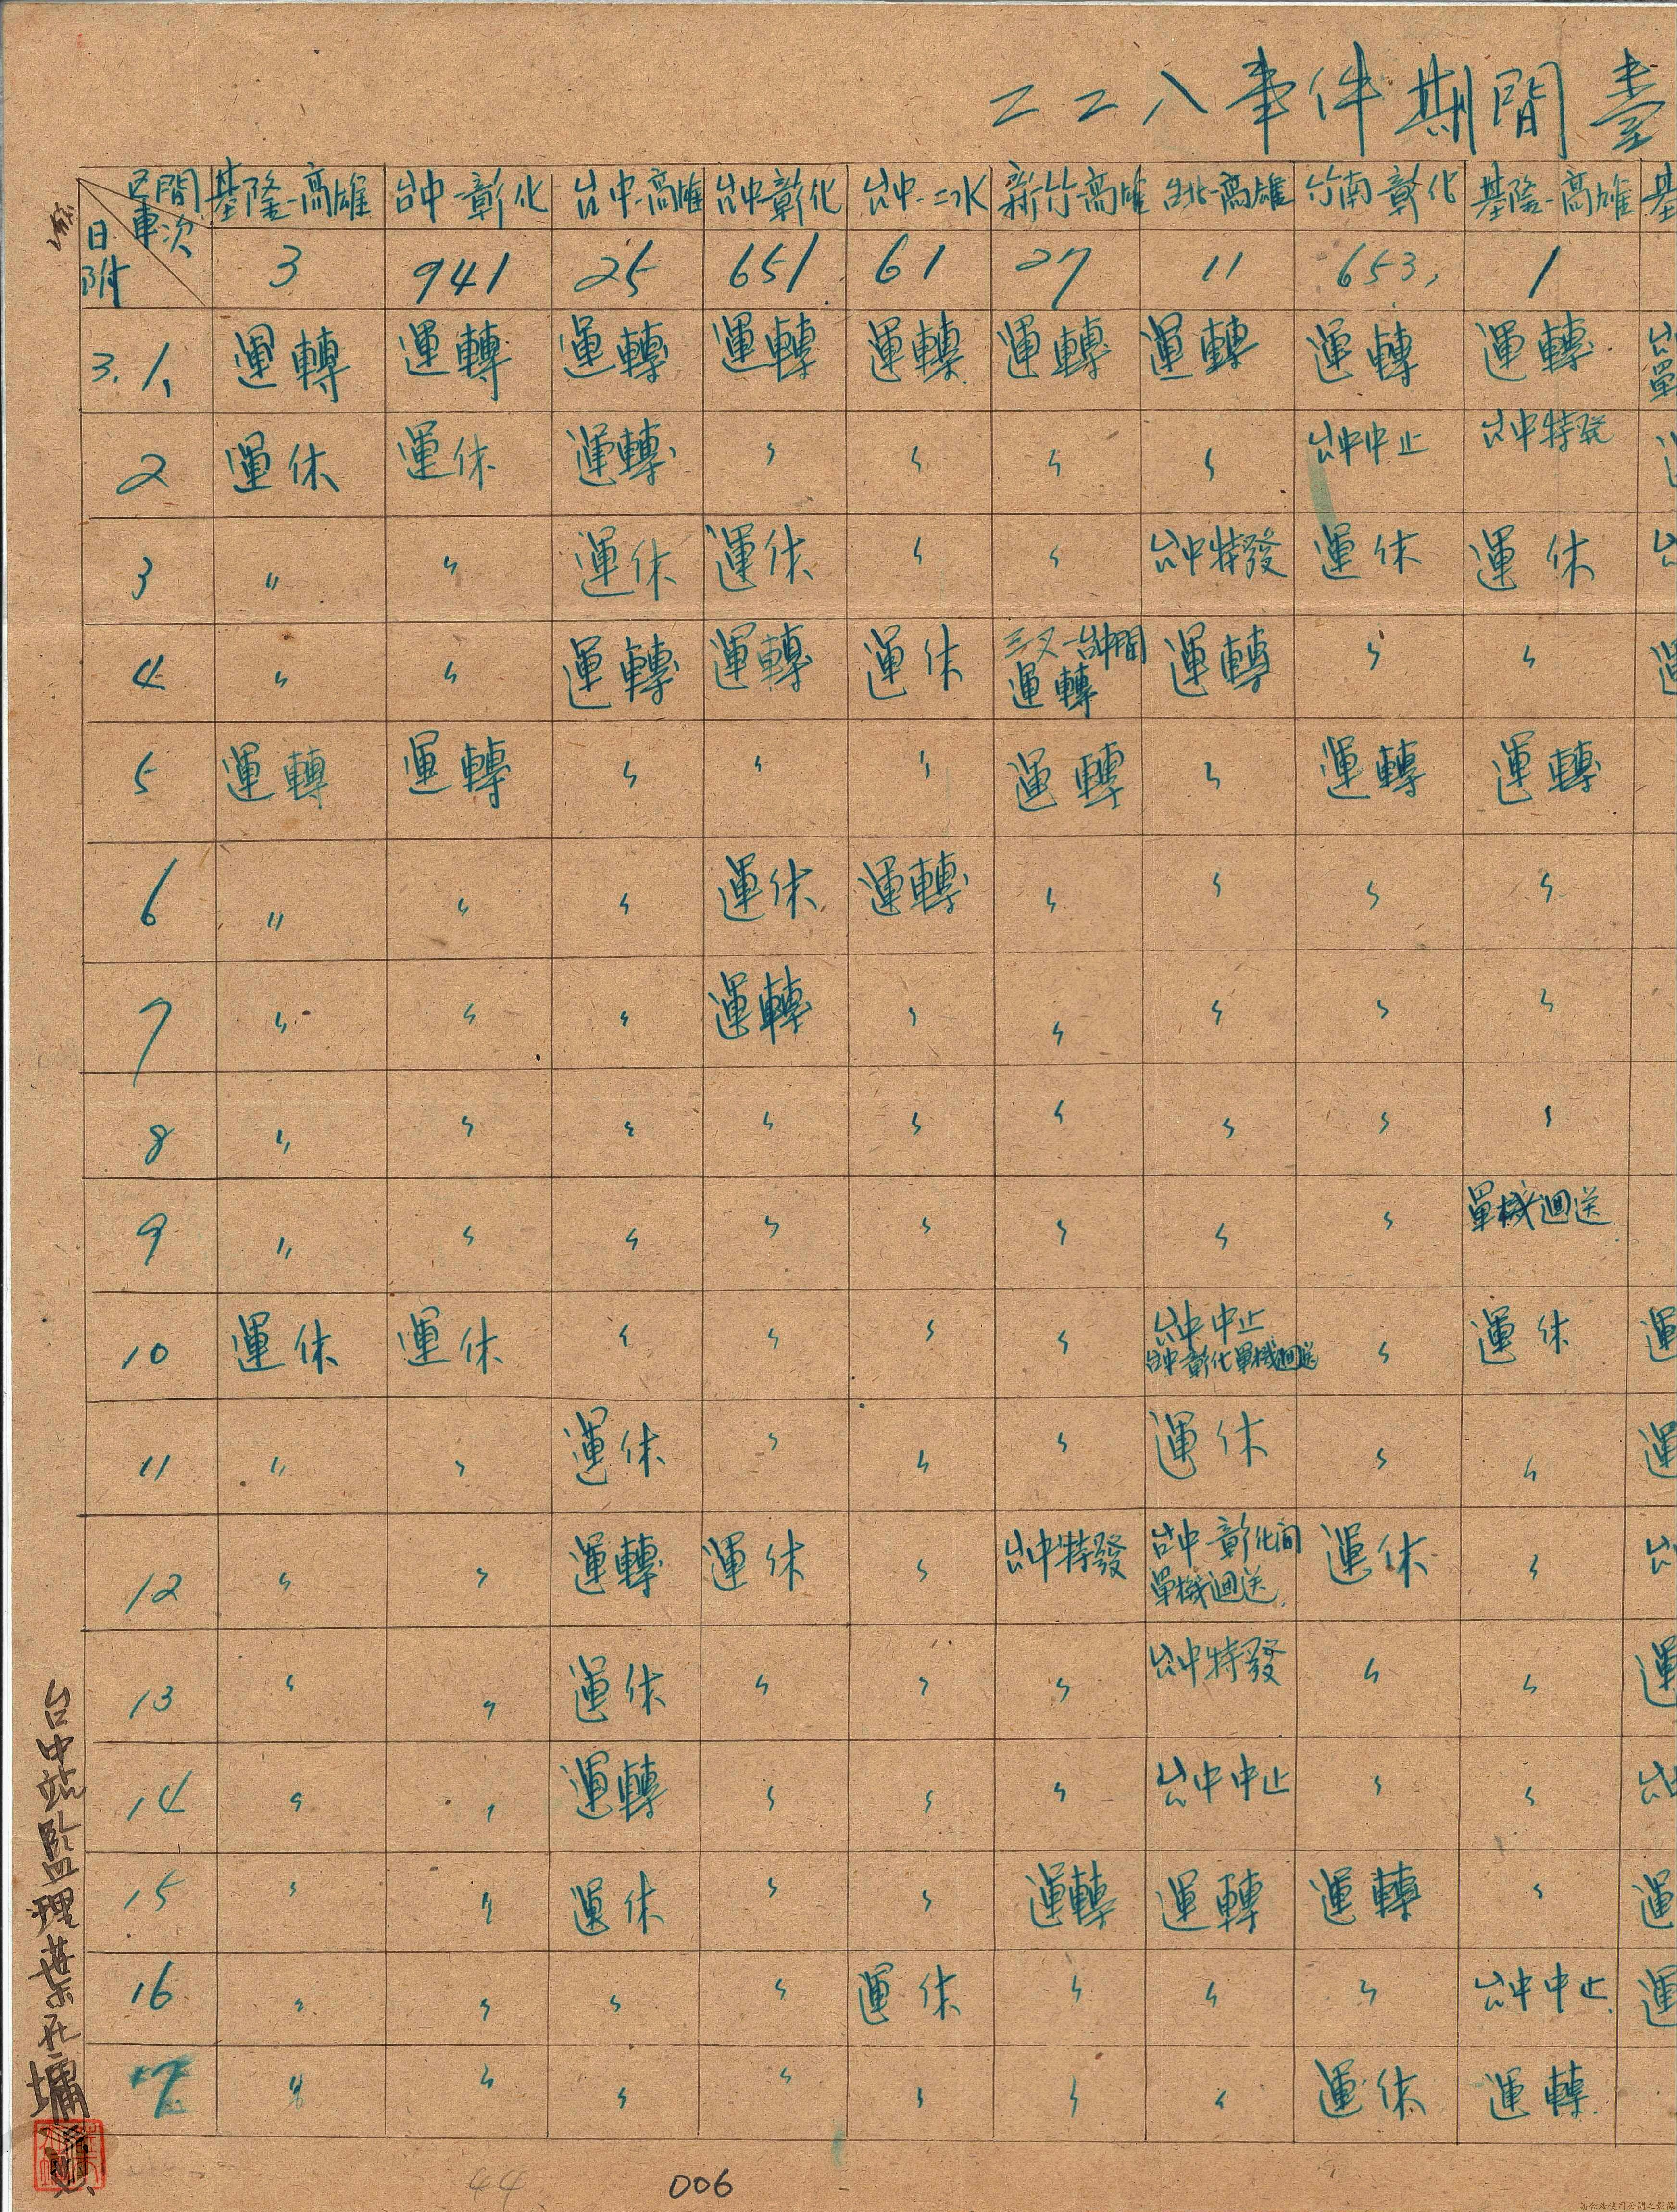 二二八事件期間臺
區間 基隆-高雄 台中-彰化 台中-高雄 台中彰化 台中-二水 新竹-高雄 台北-高雄 竹南彰化 基隆-高雄 基
車次 日附 3 941 25 651 61 27 11 653 1
3.1. 運轉 運轉 運轉 運轉 運轉 運轉 運轉 運轉 運轉
2 運休 運休 運轉 〃 〃 〃 〃 台中中止 台中特発
3 〃 〃 運休 運休 〃 〃 台中特發 運休 運休
4 〃 〃 運轉 運轉 運休 三叉-台中間運轉 運轉 〃 〃
5 運轉 運轉 〃 〃 〃 運轉 〃 運轉 運轉
6 〃 〃 〃 運休 運轉 〃 〃 〃 〃
7 〃 〃 〃 運轉 〃 〃 〃 〃 〃
8 〃 〃 〃 〃 〃 〃 〃 〃 〃
9 〃 〃 〃 〃 〃 〃 〃 〃 單機迴送
10 運休 運休 〃 〃 〃 〃 台中中止台中彰化單機迴送 〃 運休 運
11 〃 〃 運休 〃 〃 〃 運休 〃 〃 運
12 〃 〃 運轉 運休 〃 台中特發 台中-彰化间單機迴送 運休 〃 台
13 〃 〃 運休 〃 〃 〃 台中特發 〃 〃 運
14 〃 〃 運轉 〃 〃 〃 台中中止 〃 〃 台
15 〃 〃 運休 〃 〃 運轉 運轉 運轉 〃 運
16 〃 〃 〃 〃 運休 〃 〃 〃 台中中止 運
17 〃 〃 〃 〃 〃 〃 〃 運休 運轉
台中站監理葉
44
006